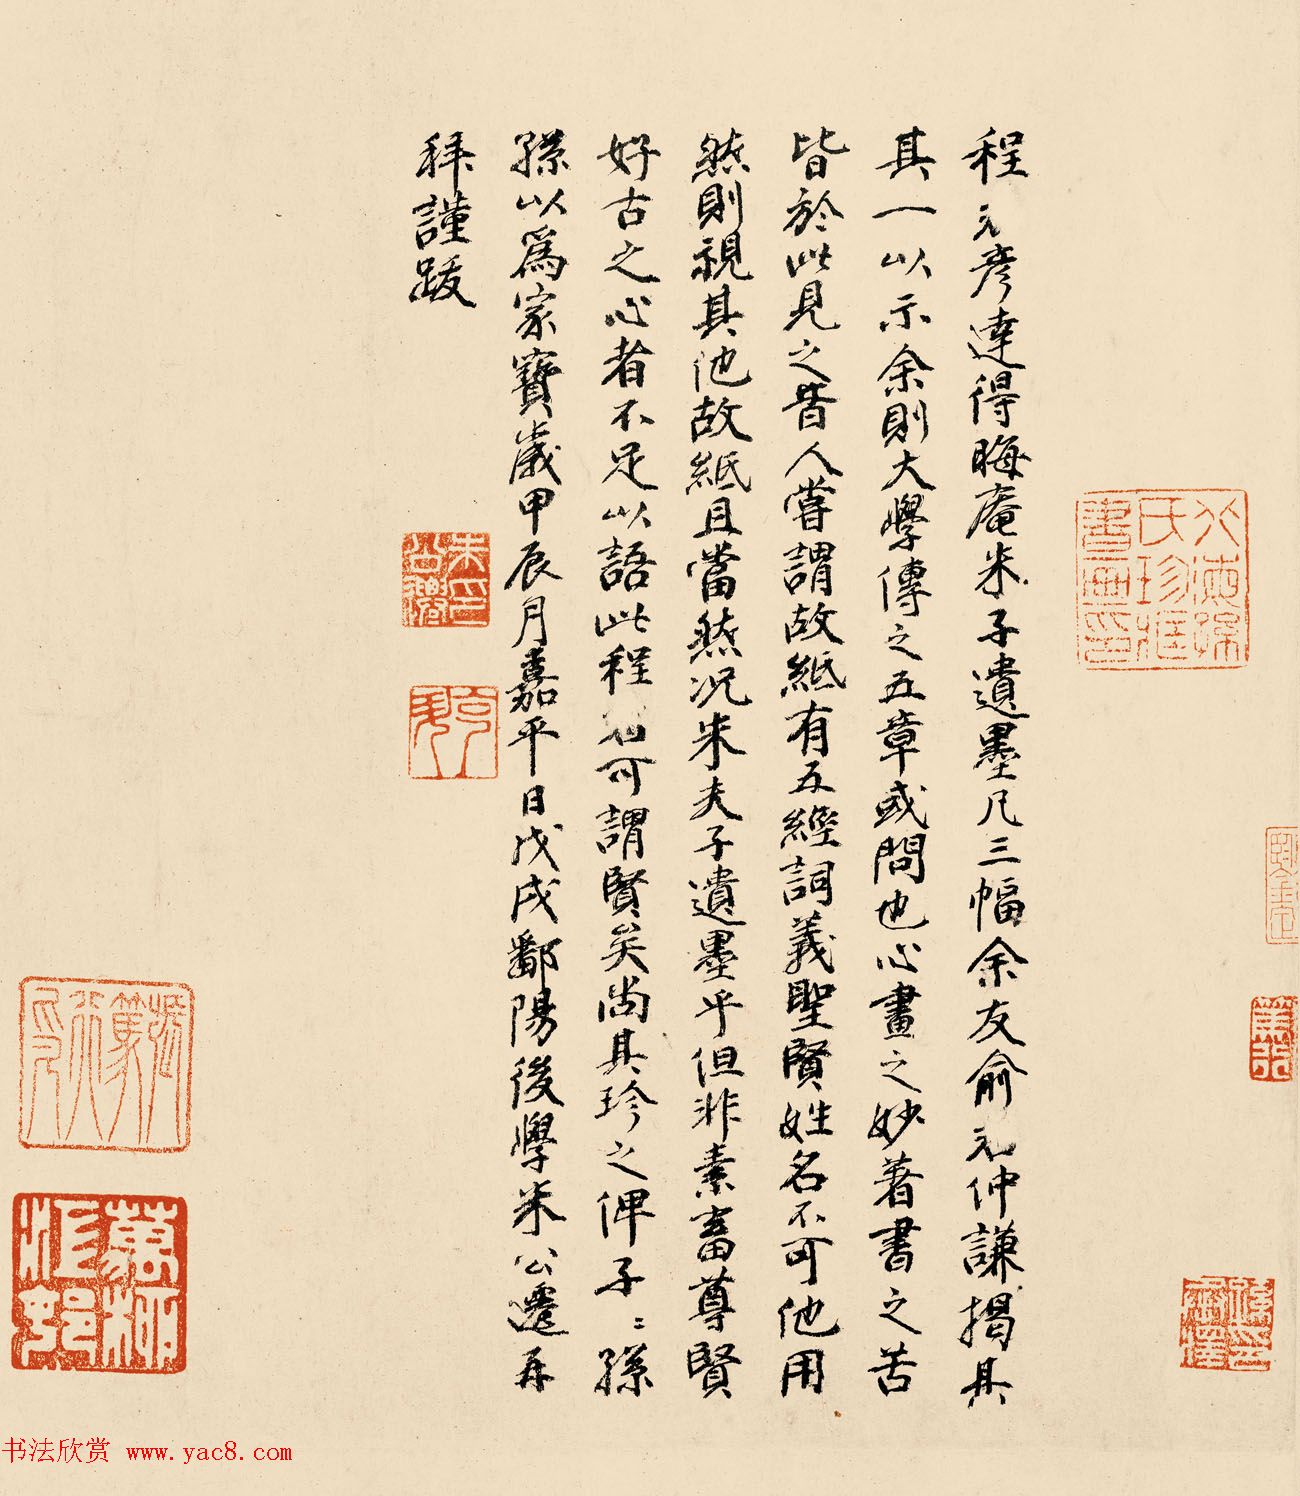 程元彦達得晦庵朱子遺墨凡三幅余友俞元仲謙揭其
其一以示余則大學傳之五章或問也心畫之妙著書之苦
皆於此見之昔人嘗謂故紙有五經詞義聖賢姓名不可他用
然則視其他故紙且當然況朱夫子遺墨乎但非素畜尊賢
好古之心者不足以語此程君可謂賢矣尚其珍之俾子〻孫
孫以為家寶歲甲辰月嘉平日戊戌鄱陽後學朱公遷再
拜謹跋
北海孫
氏珍藏
書畫印
朱氏
公遷
克升
張篤行印
蕉林
收藏
篤行
书法欣赏 www.yac8.com